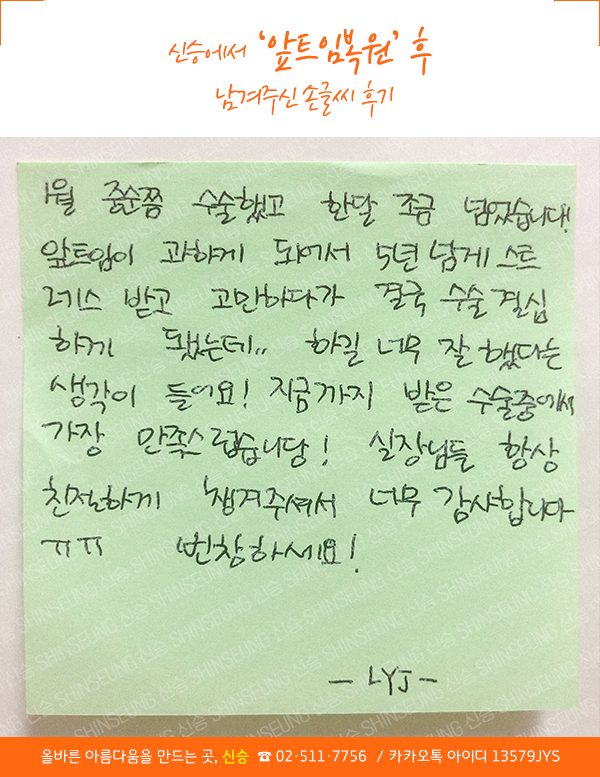 신승에서 '앞트임복원' 후
남겨주신 손글씨 후기
1월 중순쯤 수술했고 한달 조금 넘었습니다!
앞트임이 과하게 돼어서 5년 넘게 스트
레스 받고 고민하다가 결국 수술 결심
하게 됐는데.. 하길 너무 잘 했다는
생각이 들어요! 지금까지 받은 수술중에서
가장 만족스럽습니당! 실장님들 항상
친절하게 챙겨주셔서 너무 감사합니다
ㅠㅠ 번창하세요!
- LYJ -
올바른 아름다움을 만드는 곳, 신승 ☎ 02·511·7756 / 카카오톡 아이디 13579JYS